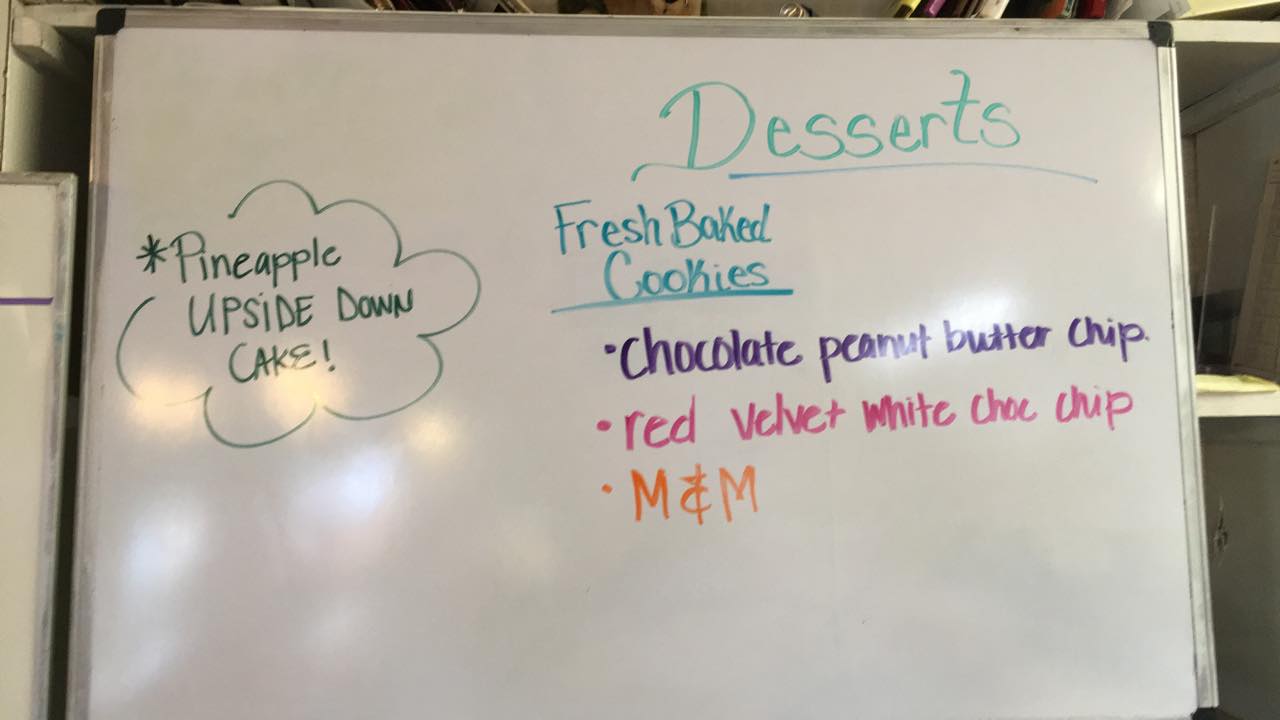 Desserts
*Pineapple
UPSIDE DOWN
CAKE!
Fresh Baked
Cookies
•Chocolate peanut butter chip.
•red velvet white choc chip
•M&M